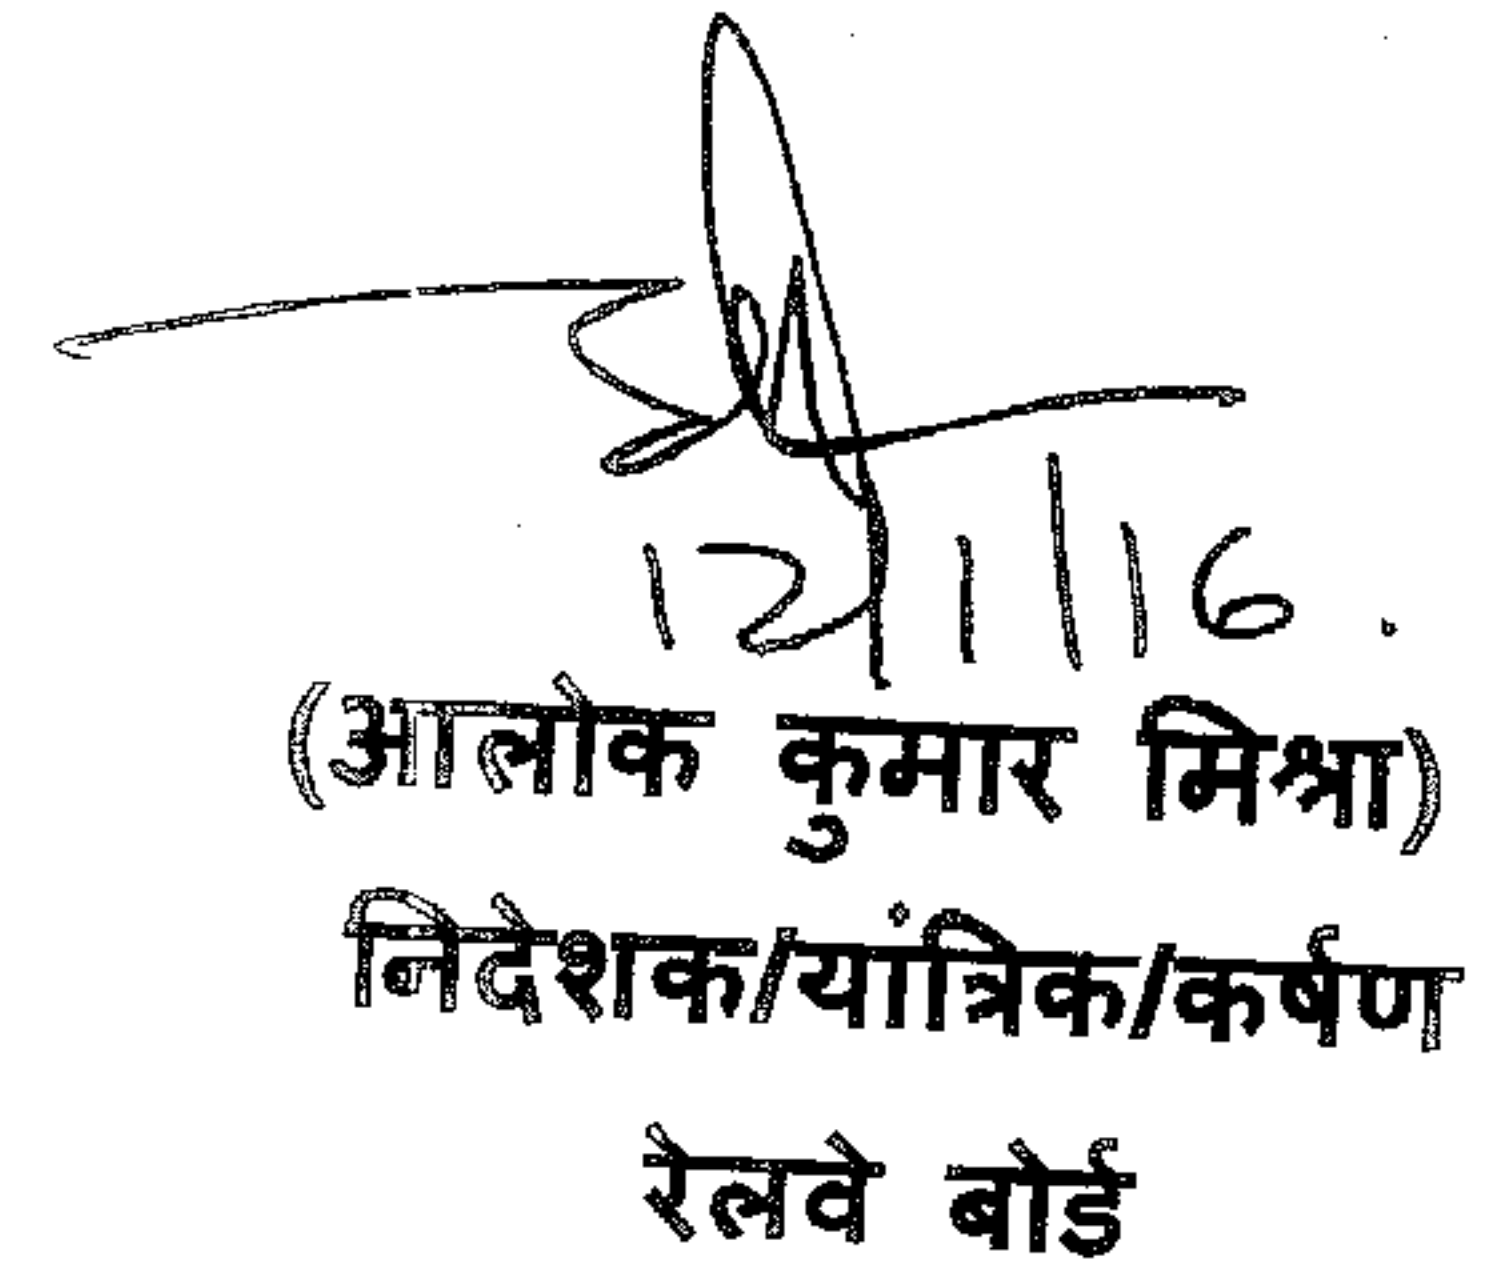 12/1/16.
(आलोक कुमार मिश्रा)
निदेशक/यांत्रिक/कर्षण
रेलवे बोर्ड